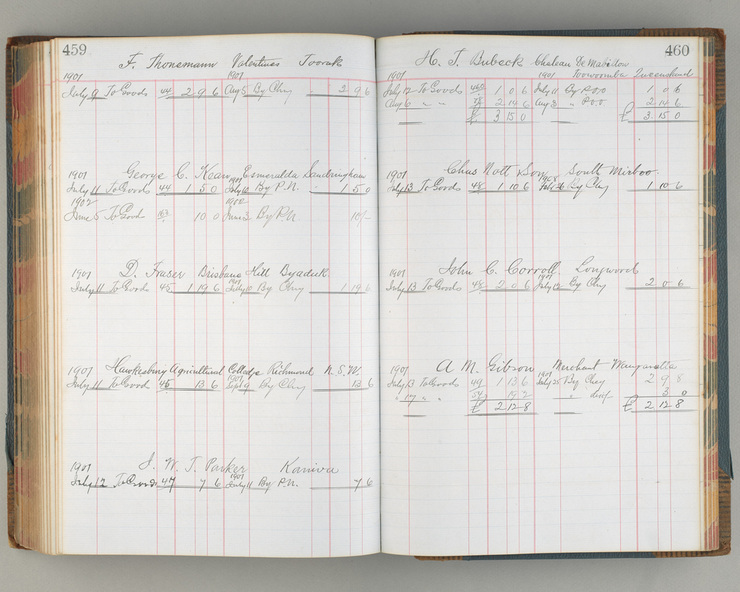 459
F. Thonemann Valentines Toorak
1901 1901
July 9 To Goods 44 2 9 6 Aug 5 By Chq 2 9 6
George C. Kean Esmeralda Sandringham
1901 1901
July 11 To Goods 44 1 5 0 July 10 By P.N. 1 5 0
1902 1902
June 5 To Good 10 0 June 3 By P.N 10/-
1901 D. Fraser Brisbane Hill Byaduk
1901
July 11 To Goods 45 1 19 6 July 10 By Chq 1 19 6
1901 Hawkesbury Agricultural College Richmond N.S.W.
1901
July 11 To Good 45 13 6 Sept 9 By Chq 13 6
1901 J. W. T. Parker Kaniva
1901
July 12 To Goods 47 7 6 July 11 By P.N. 7 6
460
H. T. Bubeck Chateau de
1901 1901 Toowoomba Queensland
July 12 To Goods 1 0 6 July 11 By P.O.O 1 0 6
Aug 6 " " 2 14 6 Aug 3 " P.O.O 2 14 6
£ 3 15 0 £ 3 15 0
1901 Chas Nott & Son South Mirboo
July 13 To Goods 48 1 10 6 By Chq 1 10 6
1901 John C. Corroll Longwood
1901
July 13 To Goods 48 2 0 6 July 12 By Chq 2 0 6
1901 A. M. Gibson Merchant Wangaratta
1901
July 13 To Goods 49 1 13 6 July 25 By Chq 2 9 8
" 17 " " 19 2 " " disct 3 0
£ 2 12 8 £ 2 12 8